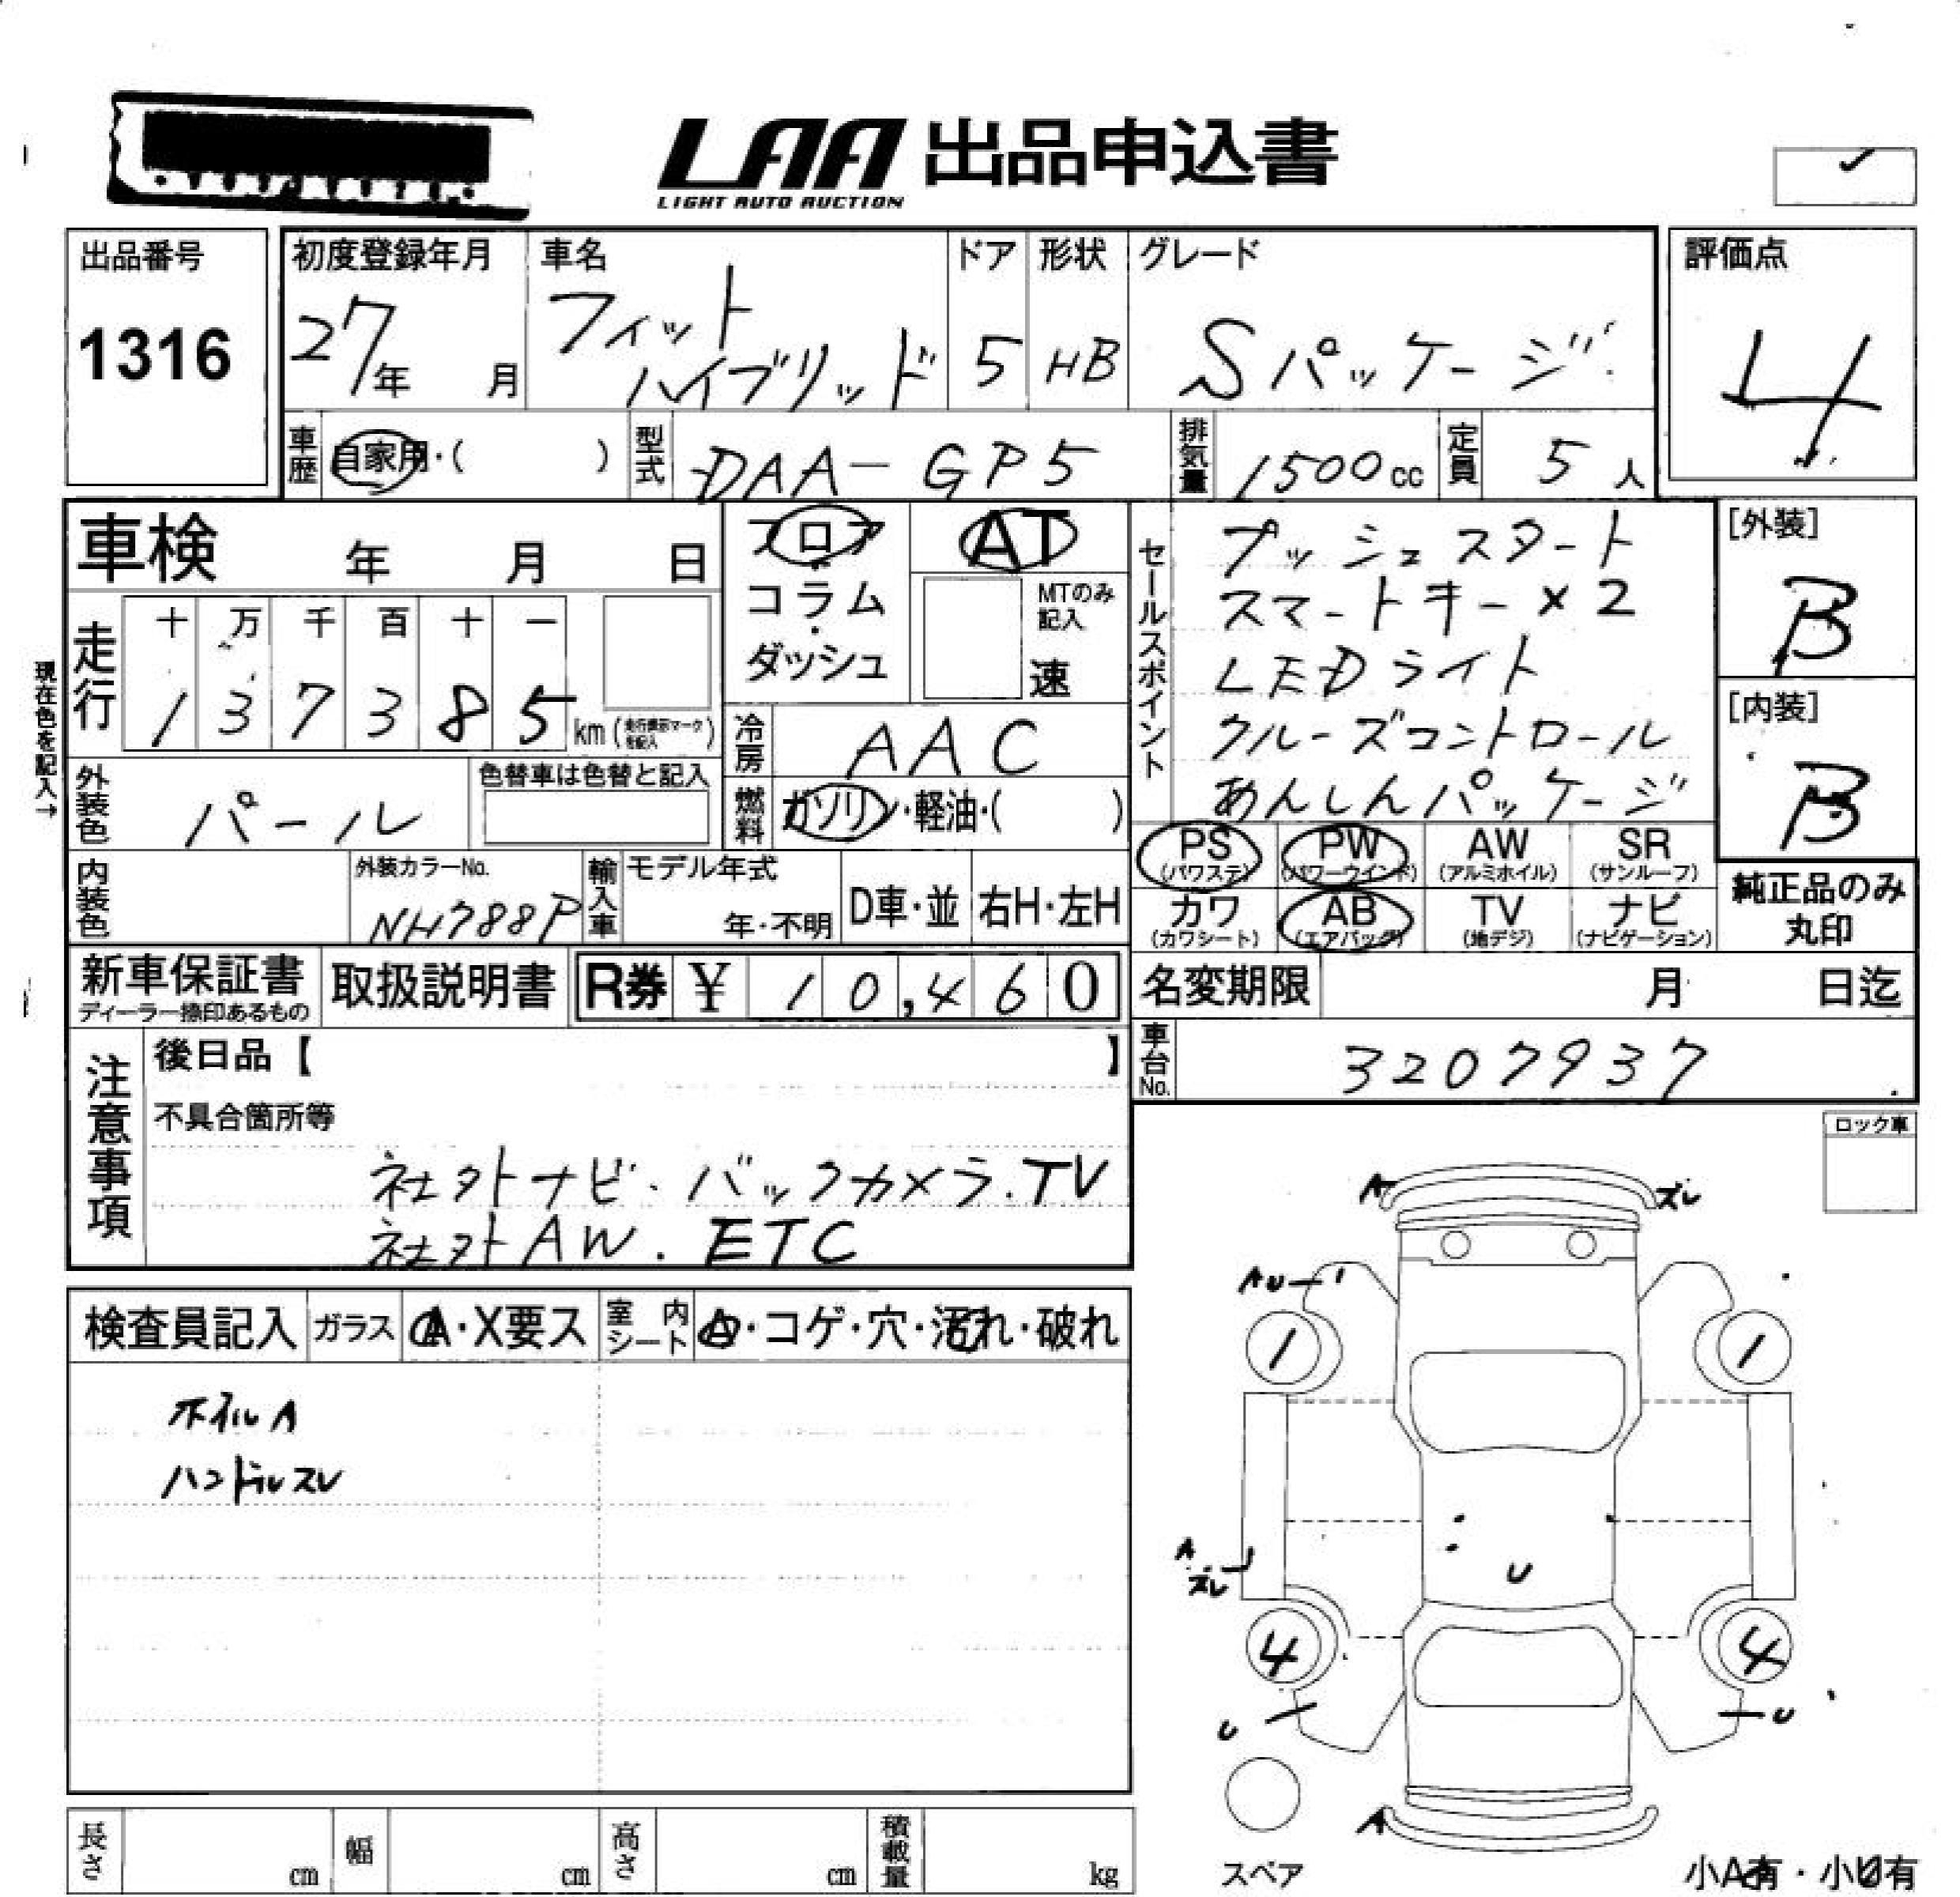 LAA 出品申込書
LIGHT AUTO AUCTION
出品番号
1316
初度登録年月
27年 月
車名
フィット
ハイブリッド
ドア
5
形状
HB
グレード
Sパッケージ
評価点
4
車歴 自家用・( )
型式 DAA-GP5
排気量 1500cc
定員 5人
車検 年 月 日
走行
十 万 千 百 十 一
1 3 7 3 8 5 km
現在色を記入→
外装色 パール
色替車は色替と記入
内装色
外装カラーNo.
NH788P
輸入車
モデル年式
年・不明
D車・並
右H・左H
フロア
コラム
・
ダッシュ
AT
MTのみ
記入
速
冷房 AAC
燃料 ガソリン・軽油・( )
セールスポイント
プッシュスタート
スマートキー×2
LEDライト
クルーズコントロール
あんしんパッケージ
[外装]
B
[内装]
B
PS
(パワステ)
PW
(パワーウインド)
AW
(アルミホイル)
SR
(サンルーフ)
カワ
(カワシート)
AB
(エアバッグ)
TV
(地デジ)
ナビ
(ナビゲーション)
純正品のみ
丸印
新車保証書
ディーラー捺印あるもの
取扱説明書
R券 ¥ 10,460
名変期限 月 日迄
車台No. 3207937
注意事項
後日品【 】
不具合箇所等
社外ナビ. バックカメラ.TV
社外AW. ETC
ロック車
検査員記入
ガラス
A・X要ス
室内シート
・コゲ・穴・汚れ・破れ
ホイルA
ハンドルスレ
A
ズレ
AU
1
1
A
ズレ
U
4
4
U
U
A
スペア
小A有・小U有
長さ cm
幅 cm
高さ cm
積載量 kg